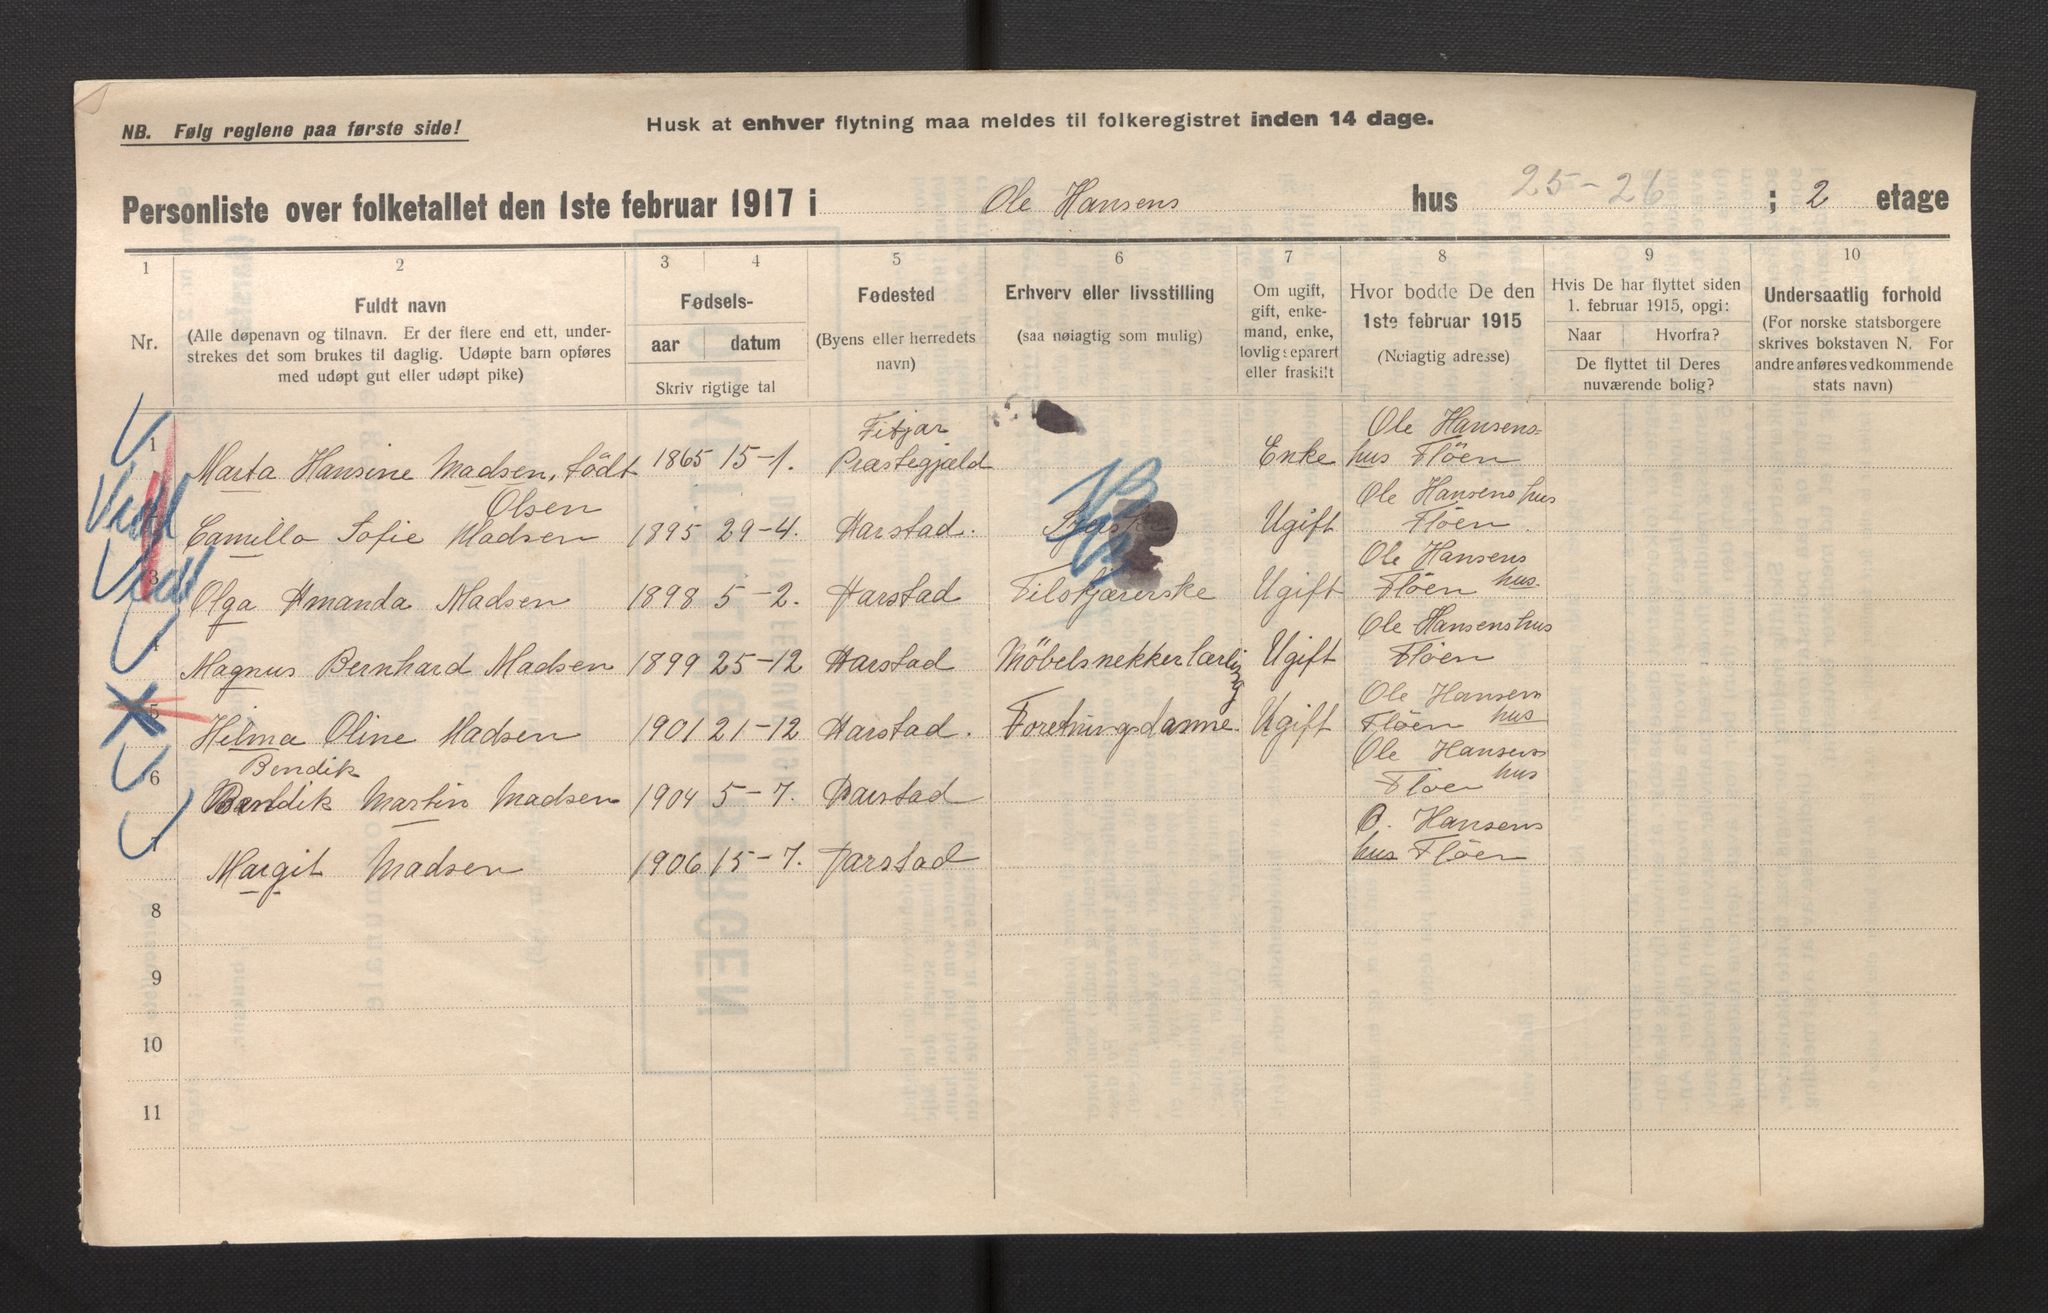 NB. Følg reglene paa første side!
Husk at enhver flytning maa meldes til folkeregistret inden 14 dage.
Personliste over folketallet den 1ste februar 1917 i Ole Hansens hus 25-26 ; 2 etage
1 2 3 4 5 6 7 8 9 10
Nr.
Fuldt navn
(Alle døpenavn og tilnavn. Er der flere end ett, under-
strekes det som brukes til daglig. Udøpte barn opføres
med udøpt gut eller udøpt pike)
Fødsels-
aar datum
Skriv rigtige tal
Fødested
(Byens eller herredets
navn)
Erhverv eller livsstilling
(saa nøiagtig som mulig)
Om ugift,
gift, enke-
mand, enke,
lovlig separert
eller fraskilt
Hvor bodde De den
1ste februar 1915
(Nøiagtig adresse)
Hvis De har flyttet siden
1. februar 1915, opgi:
Naar Hvorfra?
De flyttet til Deres
nuværende bolig?
Undersaatlig forhold
(For norske statsborgere
skrives bokstaven N. For
andre anføres vedkommende
stats navn)
1 Fitjar Ole Hansens-
Marta Hansine Madsen, födt 1865 15-1. Præstegjæld Enke hus Flöen
Olsen Ole Hansens hus
Camilla Sofie Madsen 1895 29-4. Harstad. Ugift Flöen.
3 Ole Hansens
Olga Amanda Madsen 1898 5-2. Harstad Tilskjærerske Ugift Flöen hus.
4 Ole Hansens hus
Magnus Bernhard Madsen 1899 25-12 Harstad Möbelsnekkerlærling Ugift Flöen
5 Ole Hansens
Hilma Oline Madsen 1901 21-12 Harstad. Foretningsdamme. Ugift Flöen hus
Bendik Ole Hansens
6 Bendik Martin Madsen 1904 5-7. Harstad Flöen hus
7 O. Hansens
Margit Madsen 1906 15-7. Harstad hus Flöen
8
9
10
11